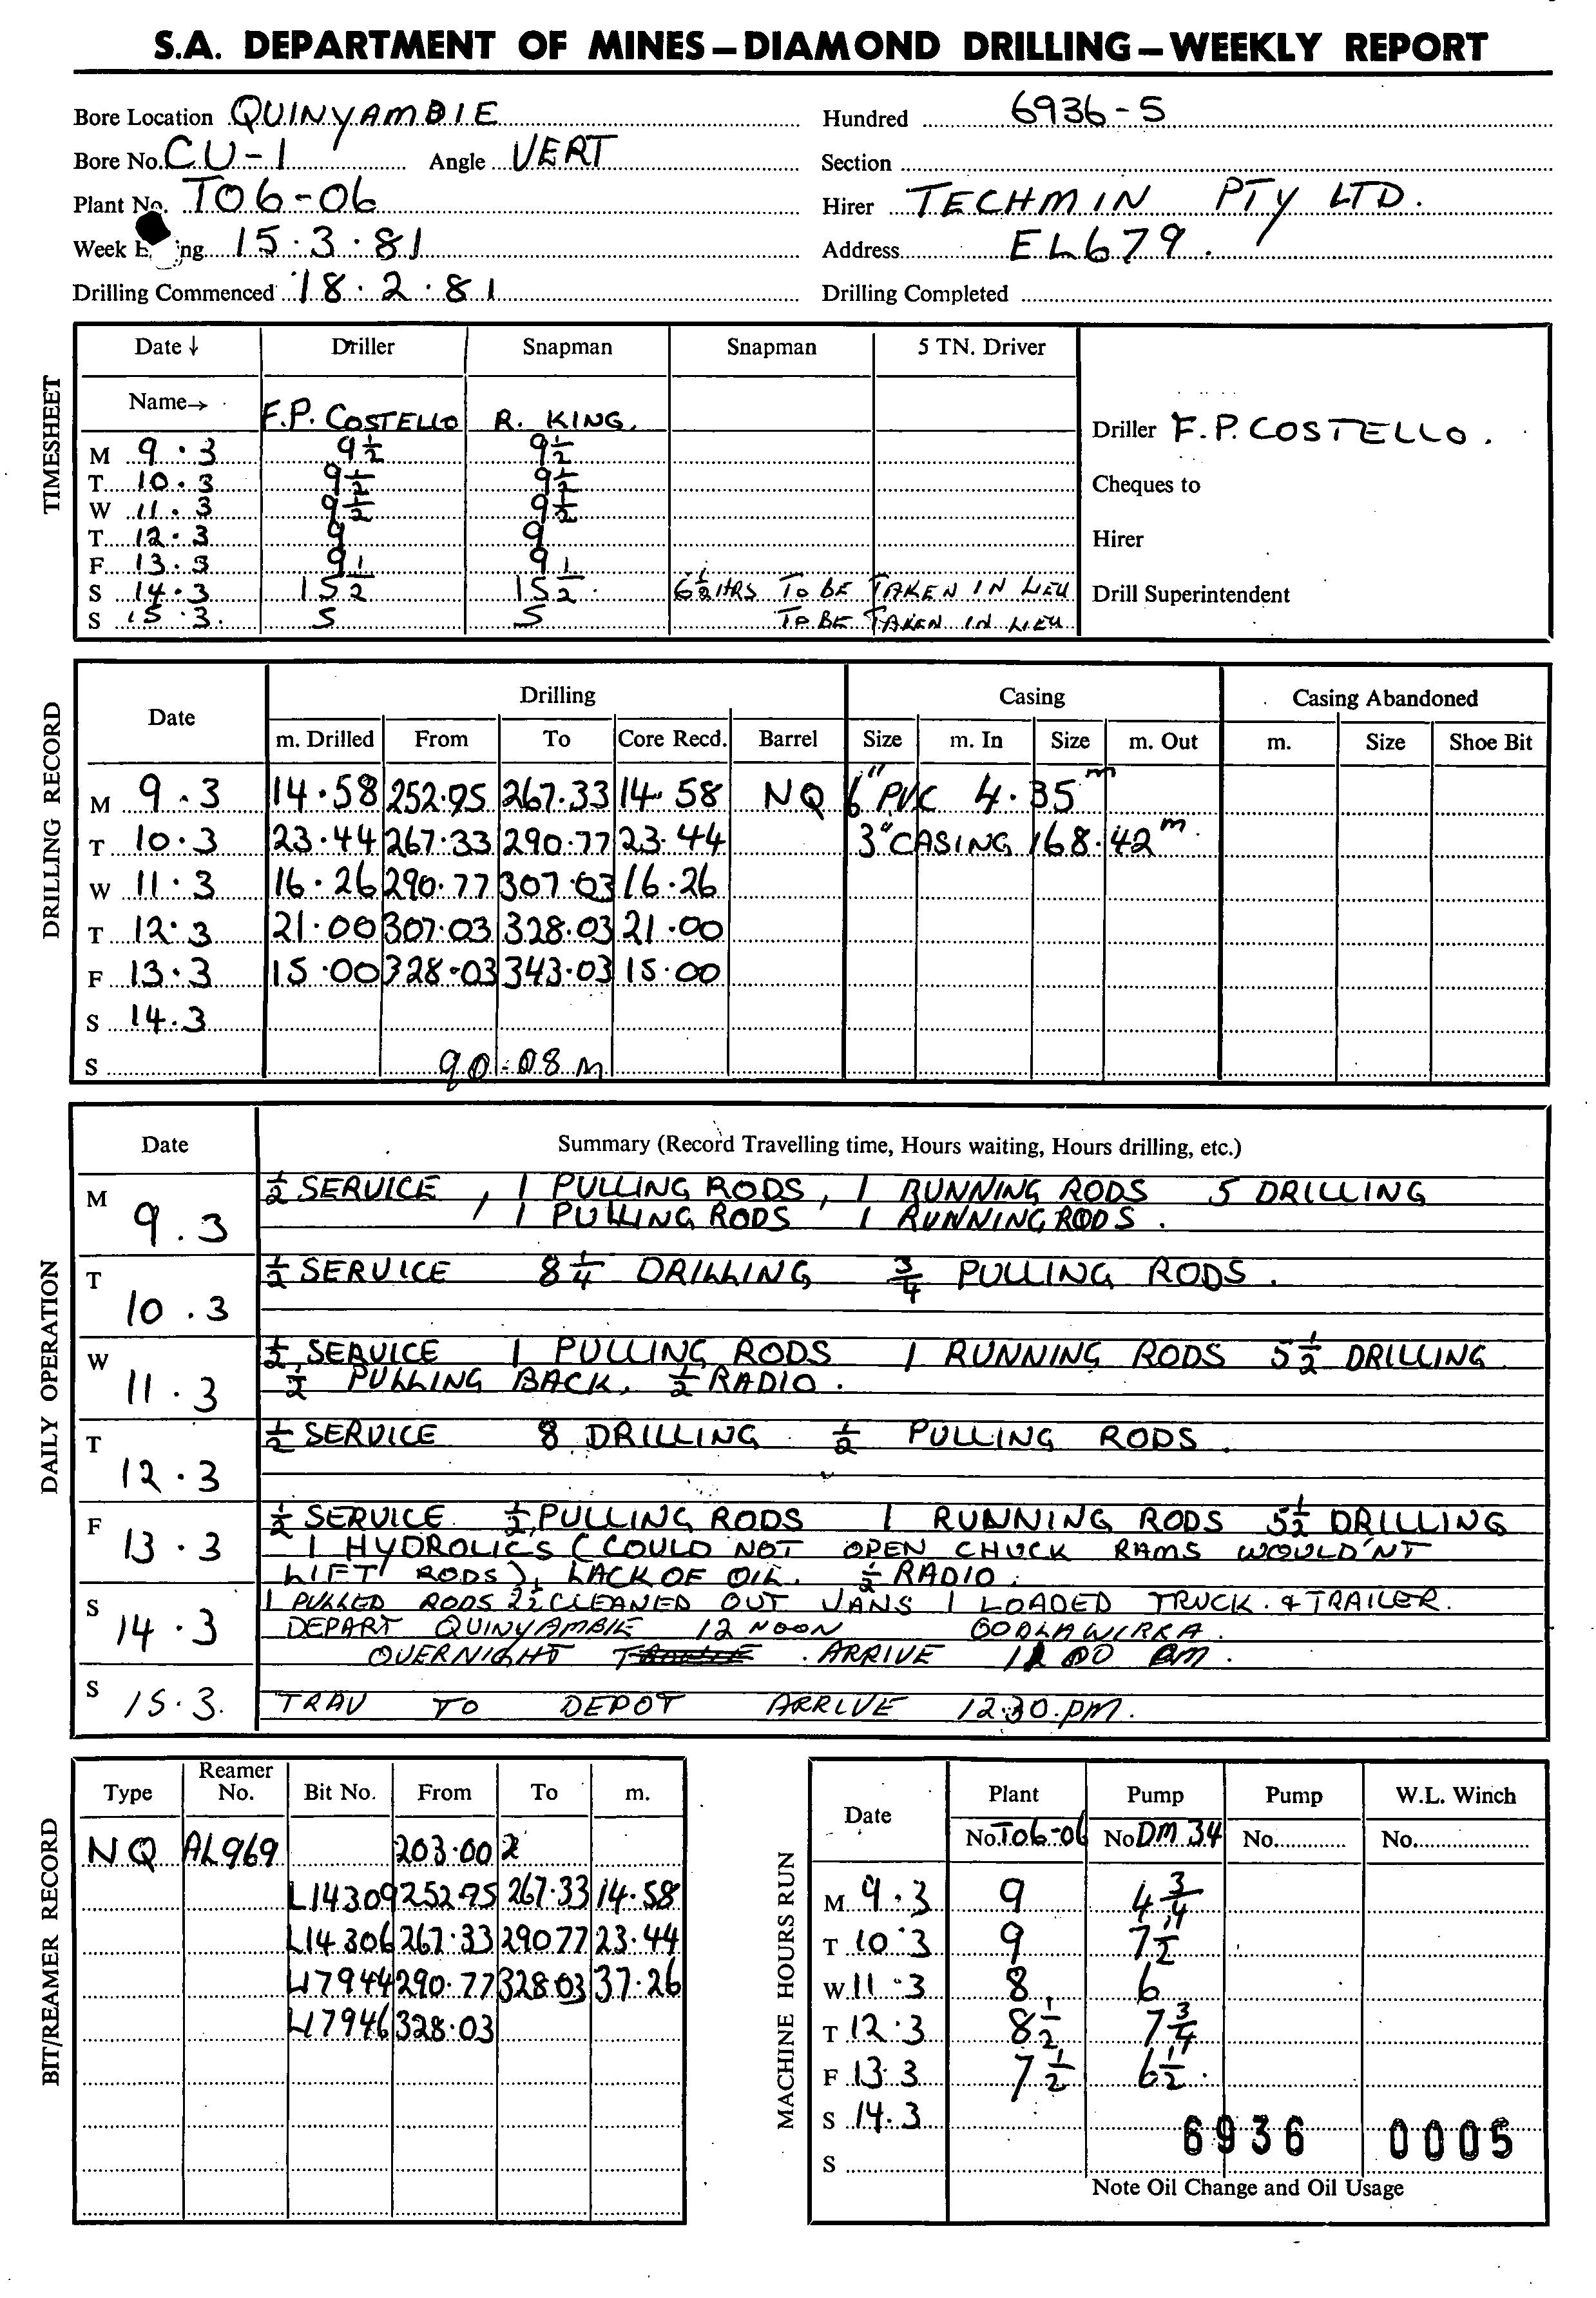 S.A. DEPARTMENT OF MINES—DIAMOND DRILLING—WEEKLY REPORT
Bore Location QUINYAMBIE Hundred 6936-5
Bore No. CU-1 Angle VERT Section
Plant No. TO6-06 Hirer TECHMIN PTY LTD.
Week E ing 15.3.81 Address EL679.
Drilling Commenced 18.2.81 Drilling Completed
TIMESHEET
Date ↓ Driller Snapman Snapman 5 TN. Driver
Name→ F.P. COSTELLO R. KING.
Driller F.P. COSTELLO.
M 9.3 9½ 9½
T 10.3 9½ 9½
Cheques to
W 11.3 9½ 9½
T 12.3 9 9
Hirer
F 13.3 9 9
S 14.3 15½ 15½ 6½ HRS TO BE TAKEN IN LIEU
Drill Superintendent
S 15.3. 5 5 TO BE TAKEN IN LIEU
DRILLING RECORD
Date Drilling Casing Casing Abandoned
m. Drilled From To Core Recd. Barrel Size m. In Size m. Out m. Size Shoe Bit
M 9.3 14.58 252.75 267.33 14.58 NQ 6" PVC 4.35m
T 10.3 23.44 267.33 290.77 23.44 3" CASING 168.42m.
W 11.3 16.26 290.77 307.03 16.26
T 12.3 21.00 307.03 328.03 21.00
F 13.3 15.00 328.03 343.03 15.00
S 14.3
S 90.08 m
DAILY OPERATION
Date Summary (Record Travelling time, Hours waiting, Hours drilling, etc.)
M 9.3 ½ SERVICE, 1 PULLING RODS, 1 RUNNING RODS 5 DRILLING
1 PULLING RODS 1 RUNNING RODS.
T 10.3 ½ SERVICE 8¼ DRILLING ¾ PULLING RODS.
W 11.3 ½ SERVICE 1 PULLING RODS 1 RUNNING RODS 5½ DRILLING
½ PULLING BACK. ½ RADIO.
T 12.3 ½ SERVICE 8 DRILLING ½ PULLING RODS.
F 13.3 ½ SERVICE ½ PULLING RODS 1 RUNNING RODS 5½ DRILLING
1 HYDROLICS (COULD NOT OPEN CHUCK RAMS WOULD'NT
LIFT RODS), LACK OF OIL. ½ RADIO.
S 14.3 1 PULLED RODS 2½ CLEANED OUT VANS 1 LOADED TRUCK & TRAILER.
DEPART QUINYAMBIE 12 NOON OOALAWIRRA.
OVERNIGHT . ARRIVE PM.
S 15.3. TRAV TO DEPOT ARRIVE 12.30.PM.
BIT/REAMER RECORD
Type Reamer No. Bit No. From To m.
NQ AL969 203.00 2
L14309 252.75 267.33 14.58
L14306 267.33 29077 23.44
L17944 290.77 328.03 37.26
L17946 328.03
MACHINE HOURS RUN
Date Plant Pump Pump W.L. Winch
No. TO6-06 No DM 34 No. No.
M 9.3 9 4¾
T 10.3 9 7½
W 11.3 8 6
T 12.3 8½ 7¾
F 13.3 7½ 6½
S 14.3
6936 0005
S
Note Oil Change and Oil Usage